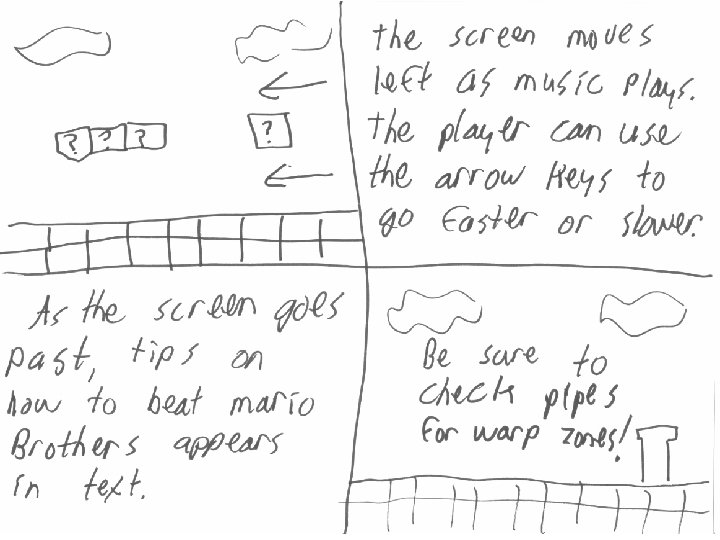 ? ? ? ?
the screen moves
left as music plays.
the player can use
the arrow keys to
go faster or slower.
As the screen goes
past, tips on
how to beat mario
Brothers appears
in text.
Be sure to
check pipes
for warp zones!